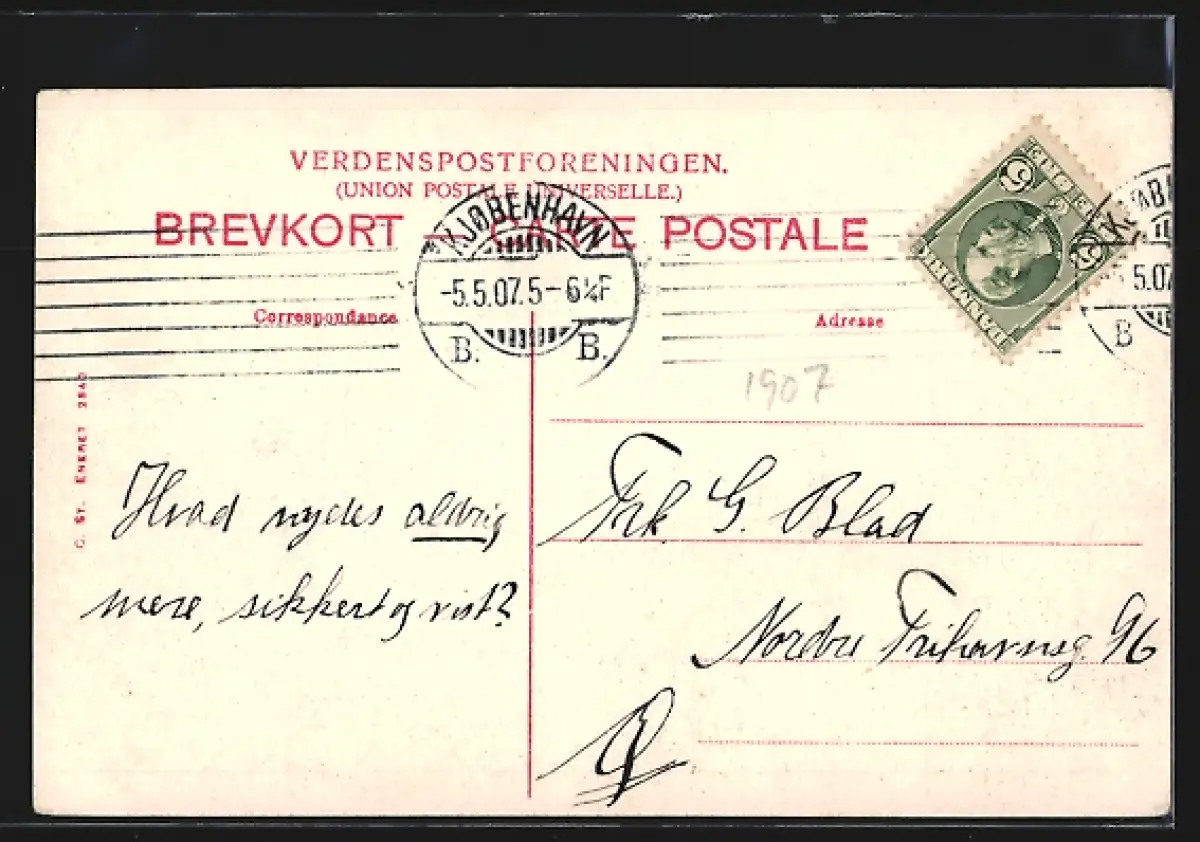 VERDENSPOSTFORENINGEN.
(UNION POSTALE UNIVERSELLE.)
BREVKORT — CARTE POSTALE
KJØBENHAVN
-5.5.07.5-6¼F
B. B.
5.07
B
DANMARK
5 5
Correspondance
Adresse
1907
C. St. ENERET 2840
Hvad nydes aldrig
mere, sikkert og vist?
Frk. G. Blad
Nordre Frihavnsg. 96